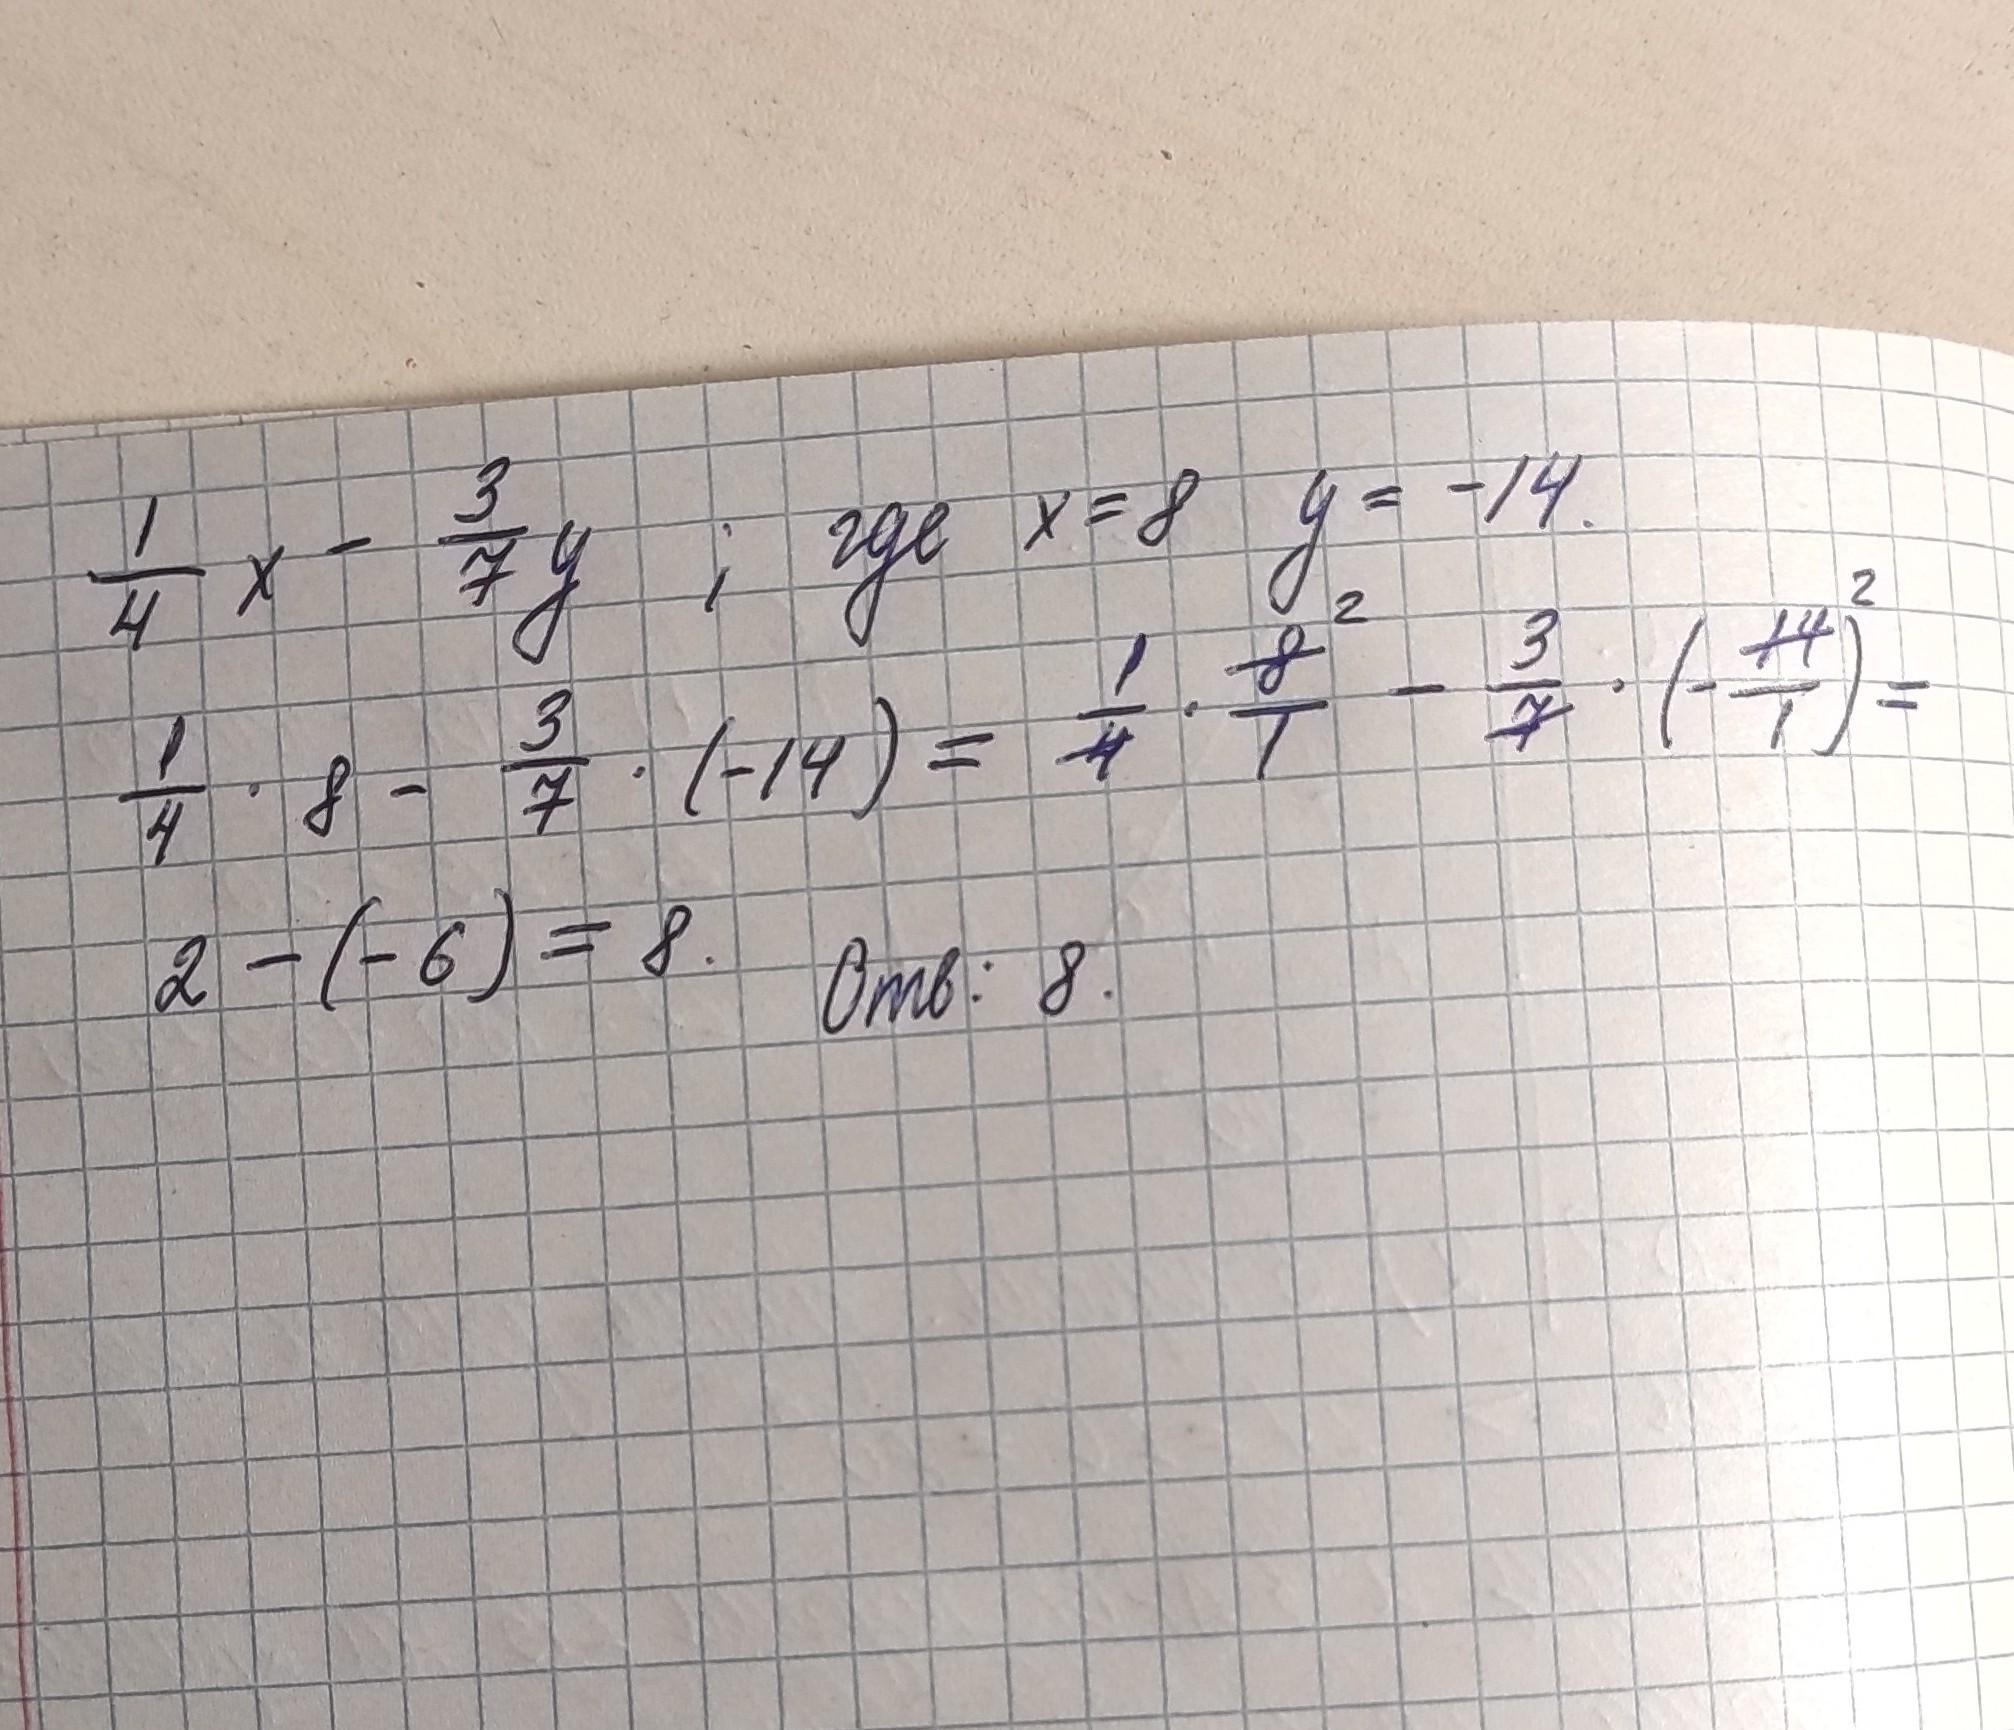 1/4 x - 3/7 y ; где x = 8 y = -14.
1/4 · 8 - 3/7 · (-14) = 1/4 · 8/1 ² - 3/7 · (-14/1)² =
2 - (-6) = 8. Отв: 8.